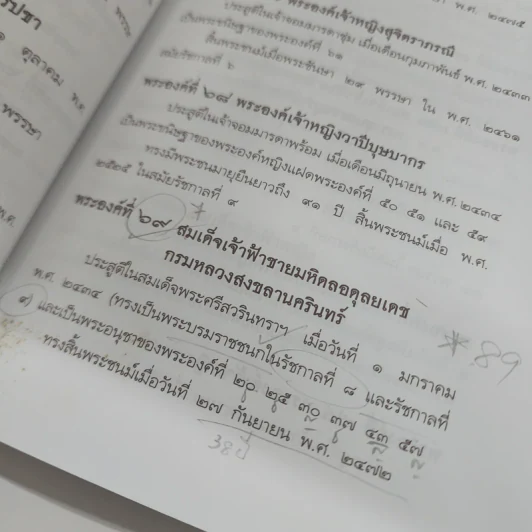 รปชา
ตุลาคม พ.ศ.
พรรษา
พ.ศ.
พ.ศ. ๒๔๗๕
พระองค์เจ้าหญิงสุจิตราภรณี
ประสูติในเจ้าจอมมารดาชุ่ม เมื่อเดือนกุมภาพันธ์ พ.ศ. ๒๔๓๓
เป็นพระขนิษฐาของพระองค์ที่ ๖๑
สิ้นพระชนม์เมื่อพระชันษา ๒๙ พรรษา ใน พ.ศ. ๒๔๖๑
สมัยรัชกาลที่ ๖
พระองค์ที่ ๖๘ พระองค์เจ้าหญิงวาปีบุษบากร
ประสูติในเจ้าจอมมารดาพร้อม เมื่อเดือนมิถุนายน พ.ศ. ๒๔๓๔
เป็นพระขนิษฐาของพระองค์หญิงแฝดพระองค์ที่ ๕๐ ๕๑ และ ๕๙
ทรงมีพระชนมายุยืนยาวถึง ๙๑ ปี สิ้นพระชนม์เมื่อ พ.ศ.
๒๕๒๕ ในสมัยรัชกาลที่ ๙
พระองค์ที่ ๖๙ * สมเด็จเจ้าฟ้าชายมหิดลอดุลยเดช
กรมหลวงสงขลานครินทร์
ประสูติในสมเด็จพระศรีสวรินทราฯ เมื่อวันที่ ๑ มกราคม
* 89
พ.ศ. ๒๔๓๔ (ทรงเป็นพระบรมราชชนกในรัชกาลที่ ๘ และรัชกาลที่
๙) และเป็นพระอนุชาของพระองค์ที่ ๒๐ ๒๕ ๓๐ ๓๗ ๔๓ ๕๗
ทรงสิ้นพระชนม์เมื่อวันที่ ๒๗ กันยายน พ.ศ. ๒๔๗๒
38 ปี